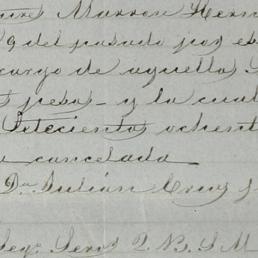 Marron Hern
9 del pasado por es
cargo de aquella
pesos - y la cual
Setecientos ochent
cancelada
Dn Julián Cruz y
Segr. Serv. Q. B. S. M.